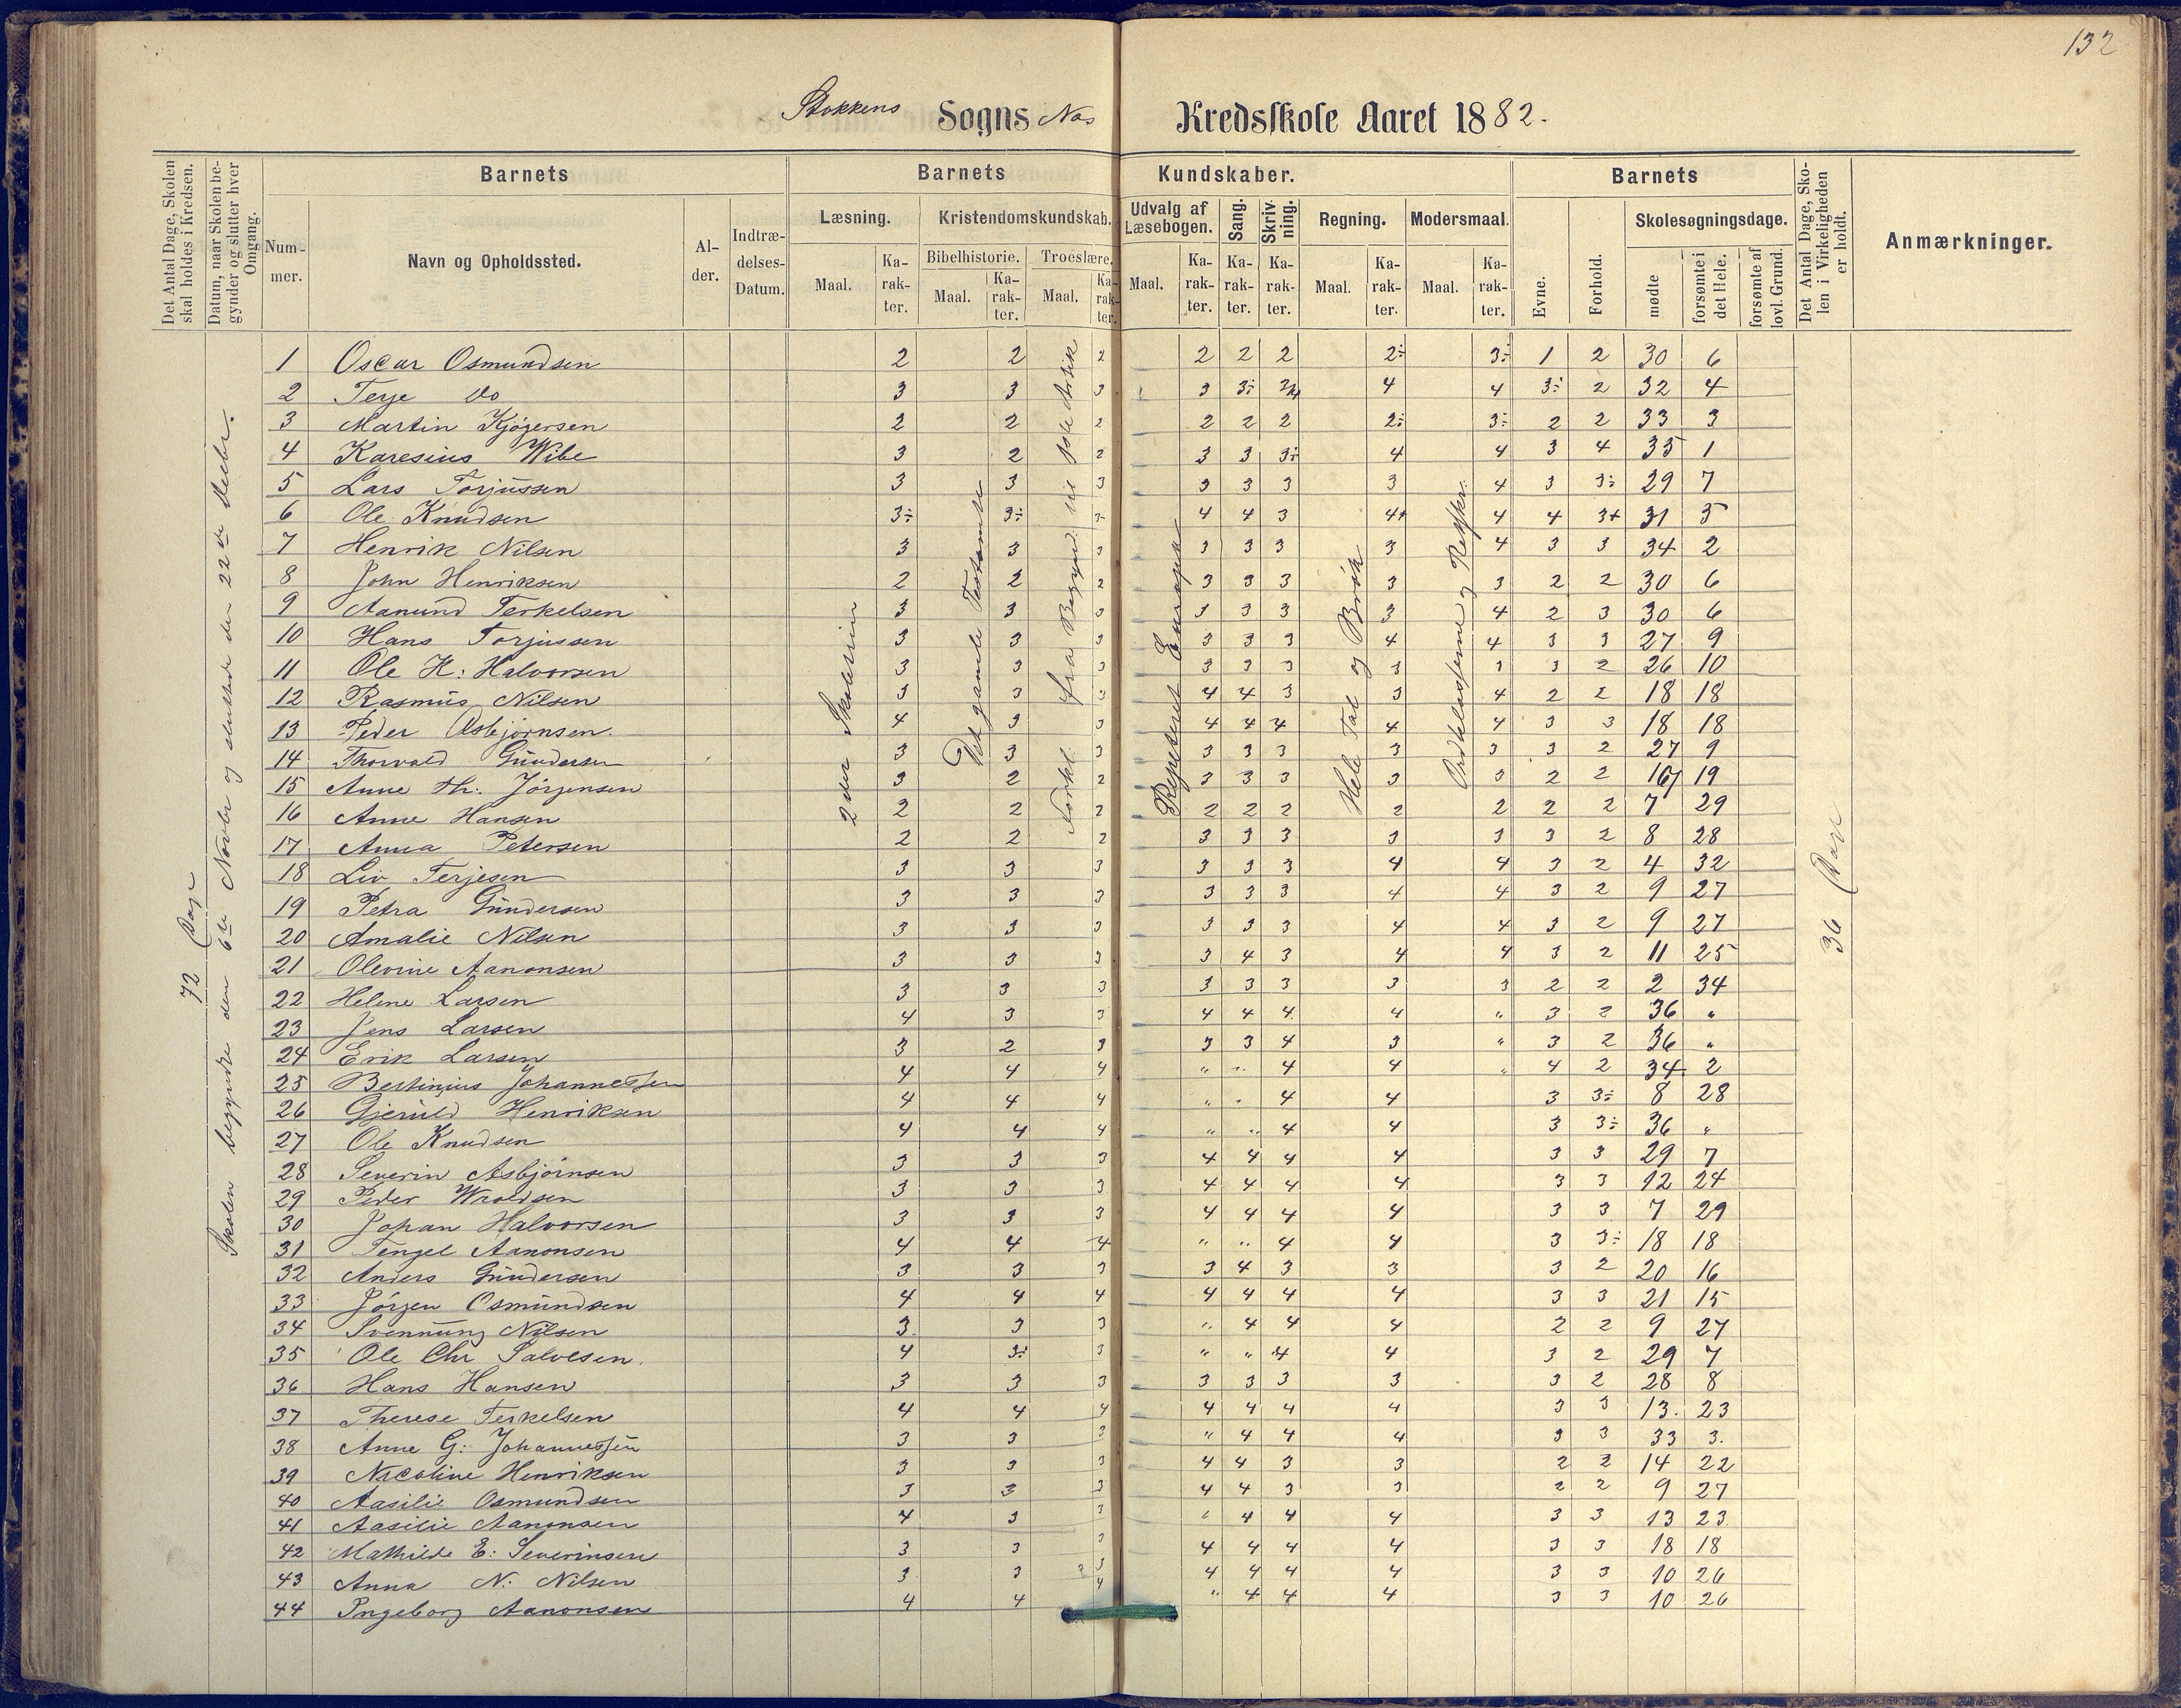 132
Stokkens Sogns Næs Kredsskole Aaret 1882.
Det Antal Dage, Skolen skal holdes i Kredsen.
Datum, naar Skolen begynder og slutter hver Omgang.
Barnets
Barnets Kundskaber.
Barnets
Det Antal Dage, Skolen i Virkeligheden er holdt.
Anmærkninger.
Nummer.
Navn og Opholdssted.
Alder.
Indtrædelses-Datum.
Læsning.
Kristendomskundskab.
Udvalg af Læsebogen.
Sang.
Skrivning.
Regning.
Modersmaal.
Evne.
Forhold.
Skolesøgningsdage.
Bibelhistorie.
Troeslære.
Maal. Karakter. Maal. Karakter. Maal. Karakter. Maal. Karakter. Karakter. Karakter. Maal. Karakter. Maal. Karakter. mødte forsømte i det Hele. forsømte af lovl. Grund.
72 Dage
Skolen begyndte den 6te Novbr og sluttede den 22de Decbr.
2den Skoletrin
Det gamle Testamente
Forkl. fra Begynd. til 3die Artik
Repeteret Europa
Hele Tal og Brøk
Ordklasserne og Retskr.
36 Dage
1 Oscar Osmundsen 2 2 2 2 2 2 2÷ 3÷ 1 2 30 6
2 Terje Do 3 3 3 3 3÷ 3/4 4 4 3÷ 2 32 4
3 Martin Kjøgersen 2 2 2 2 2 2 2÷ 3÷ 2 2 33 3
4 Karesius Wibe 3 2 2 3 3 3÷ 4 4 3 4 35 1
5 Lars Torjussen 3 3 3 3 3 3 3 4 3 3÷ 29 7
6 Ole Knudsen 3÷ 3÷ 3÷ 4 4 3 4+ 4 4 3+ 31 5
7 Henrik Nilsen 3 3 3 3 3 3 3 4 3 3 34 2
8 John Henriksen 2 2 2 3 3 3 3 3 2 2 30 6
9 Aanund Terkelsen 3 3 3 3 3 3 3 4 2 3 30 6
10 Hans Torjussen 3 3 3 3 3 3 4 4 3 3 27 9
11 Ole H: Halvorsen 3 3 3 3 3 3 3 3 3 2 26 10
12 Rasmus Nilsen 3 3 3 4 4 3 3 4 2 2 18 18
13 Peder Asbjørnsen. 4 3 3 4 4 4 4 4 3 3 18 18
14 Thorvald Gundersen 3 3 3 3 3 3 3 3 3 2 27 9
15 Anne Th: Jørgensen 3 2 2 3 3 3 3 3 2 2 17 19
16 Anne Hansen 2 2 2 2 2 2 2 2 2 2 7 29
17 Anna Petersen 2 2 2 3 3 3 3 3 3 2 8 28
18 Liv Terjesen 3 3 3 3 3 3 4 4 3 2 4 32
19 Petra Gundersen 3 3 3 3 3 3 4 4 3 2 9 27
20 Amalie Nilsen 3 3 3 3 3 3 4 4 3 2 9 27
21 Olevine Aanonsen 3 3 3 3 4 3 4 4 3 2 11 25
22 Helene Larsen 3 3 3 3 3 3 3 3 2 2 2 34
23 Jens Larsen 4 3 3 4 4 4 4 " 3 2 36 "
24 Erik Larsen 3 2 3 3 3 4 3 " 3 2 36 "
25 Bertinius Johannessen 4 4 4 " " 4 4 " 4 2 34 2
26 Gjeruld Henriksen 4 4 4 " " 4 4 3 3÷ 8 28
27 Ole Knudsen 4 4 4 " " 4 4 3 3÷ 36 "
28 Severin Asbjørnsen 3 3 3 4 4 4 4 3 3 29 7
29 Peder Wroldsen 3 3 3 4 4 4 4 3 3 12 24
30 Johan Halvorsen 3 3 3 4 4 4 4 3 3 7 29
31 Tengel Aanonsen 4 4 4 " " 4 4 3 3÷ 18 18
32 Anders Gundersen 3 3 3 3 4 3 3 3 2 20 16
33 Jørgen Osmundsen 4 4 4 4 4 4 4 3 3 21 15
34 Svennung Nilsen 3 3 3 " 4 4 4 2 2 9 27
35 Ole Chr Salvesen. 4 3÷ 3 " " 4 4 3 2 29 7
36 Hans Hansen 3 3 3 3 3 3 3 3 2 28 8
37 Therese Terkelsen 4 4 4 4 4 4 4 3 3 13. 23
38 Anne G: Johannessen 3 3 3 " 4 4 4 3 3 33 3.
39 Nicoline Henriksen 3 3 3 4 4 3 3 2 2 14 22
40 Aasilie Osmundsen 3 3 3 4 4 3 3 2 2 9 27
41 Aasilie Aanonsen 4 3 3 " 4 4 4 3 3 13 23.
42 Mathilde E: Severinsen 3 3 3 4 4 4 4 3 3 18 18
43 Anna N: Nilsen 3 3 3 4 4 4 4 3 3 10 26
44 Ingeborg Aanonsen 4 4 4 " 4 4 4 3 3 10 26